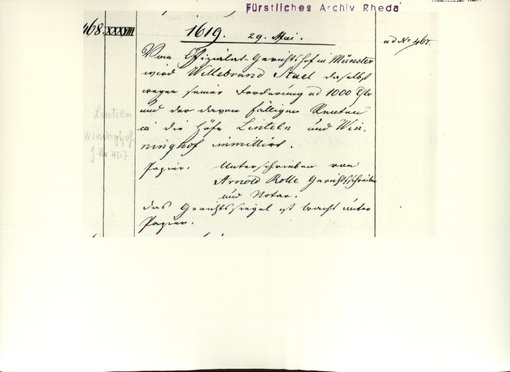 Fürstliches Archiv Rheda
468. XXXVIII 1619. 29. Mai. ad No 467.
Vom Offizialat-Gerichtshof in Münster
wird Willebrand Stael daselbst
wegen seiner Forderung ad 1000 Thlr
und der davon fälligen Renten
in die Höfe Linteln und Win-
ninghof immittirt.
Linteln
Wininghof
f. No 467.
Papier. Unterschrieben von
Arnold Rolle Gerichtsschreiber
und Notar.
Das Gerichtssiegel ist braun unter
Papier.